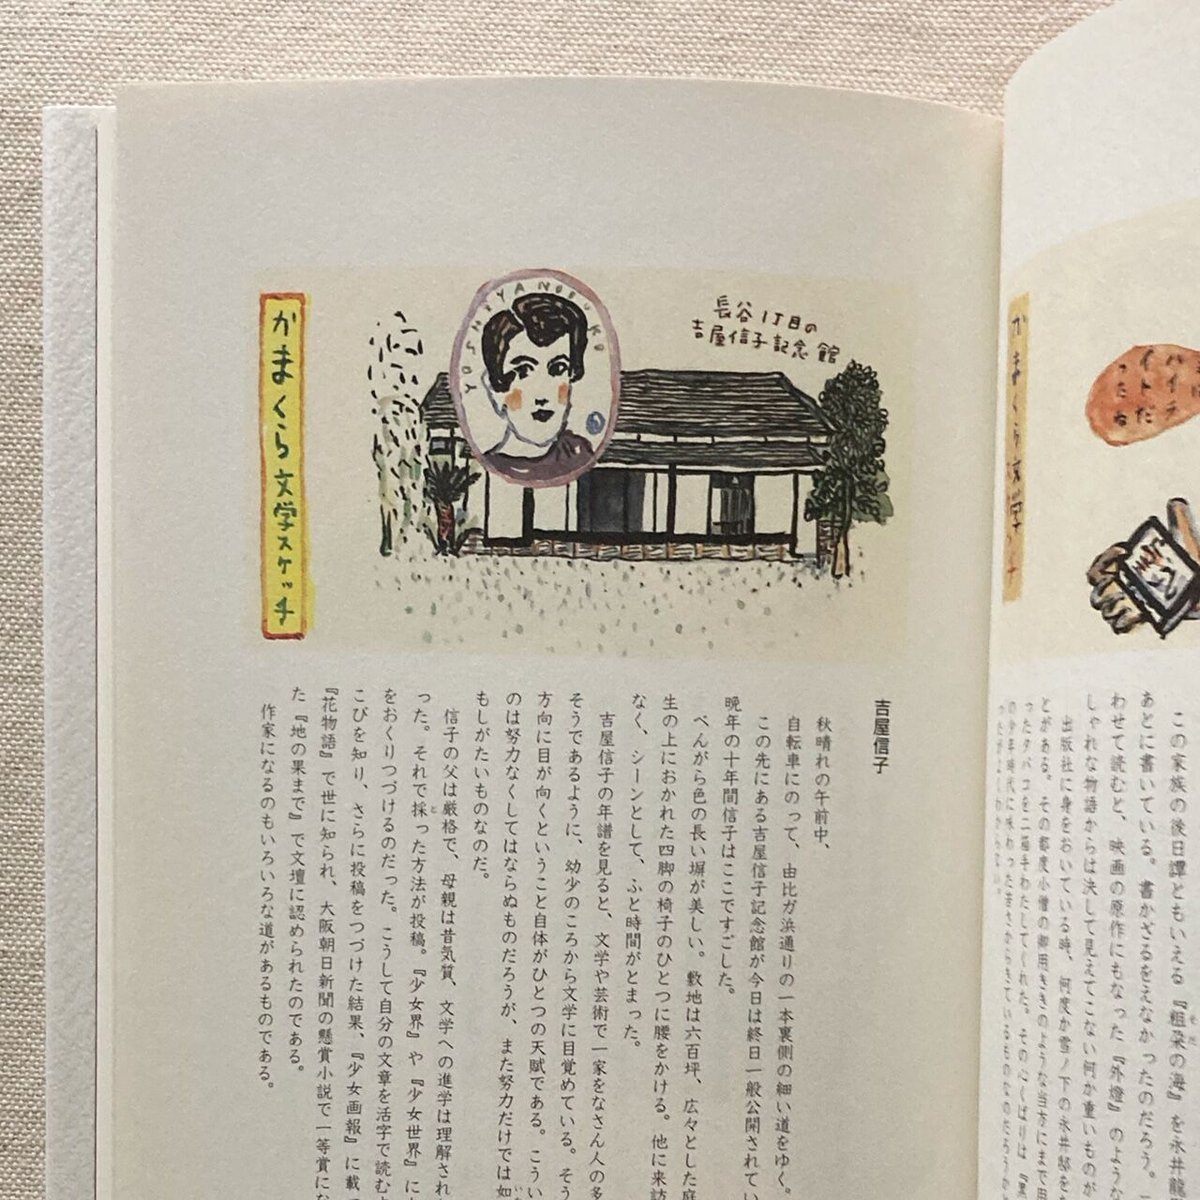 ハイラ
イトだ
ったね
かまくら文学
この家族の後日譚ともいえる『粗朶の海』を永井龍
あとに書いている。書かざるをえなかったのだろう。
わせて読むと、映画の原作にもなった『外燈』のような
しゃれな物語からは決して見えてこない何か重いものが
出版社に身をおいている時、何度か雪ノ下の永井邸を
とがある。その都度小僧の御用ききのような当方にまで
ったタバコを二箱手わたしてくれた。その心くばりは『
長谷1丁目の
吉屋信子記念館
YOSHIYA NOBUKO
かまくら文学スケッチ
吉屋信子
秋晴れの午前中、
自転車にのって、由比ガ浜通りの一本裏側の細い道をゆく。
この先にある吉屋信子記念館が今日は終日一般公開されてい
晩年の十年間信子はここですごした。
べんがら色の長い塀が美しい。敷地は六百坪、広々とした庭
生の上におかれた四脚の椅子のひとつに腰をかける。他に来訪
なく、シーンとして、ふと時間がとまった。
吉屋信子の年譜を見ると、文学や芸術で一家をなさん人の多
そうであるように、幼少のころから文学に目覚めている。そう
方向に目が向くということ自体がひとつの天賦である。こうい
のは努力なくしてはならぬものだろうが、また努力だけでは如
もしがたいものなのだ。
信子の父は厳格で、母親は昔気質、文学への進学は理解され
った。それで採った方法が投稿。『少女界』や『少女世界』に
をおくりつづけるのだった。こうして自分の文章を活字で読む
こびを知り、さらに投稿をつづけた結果、『少女画報』に載
『花物語』で世に知られ、大阪朝日新聞の懸賞小説で一等賞にな
た『地の果まで』で文壇に認められたのである。
作家になるのもいろいろな道があるものである。